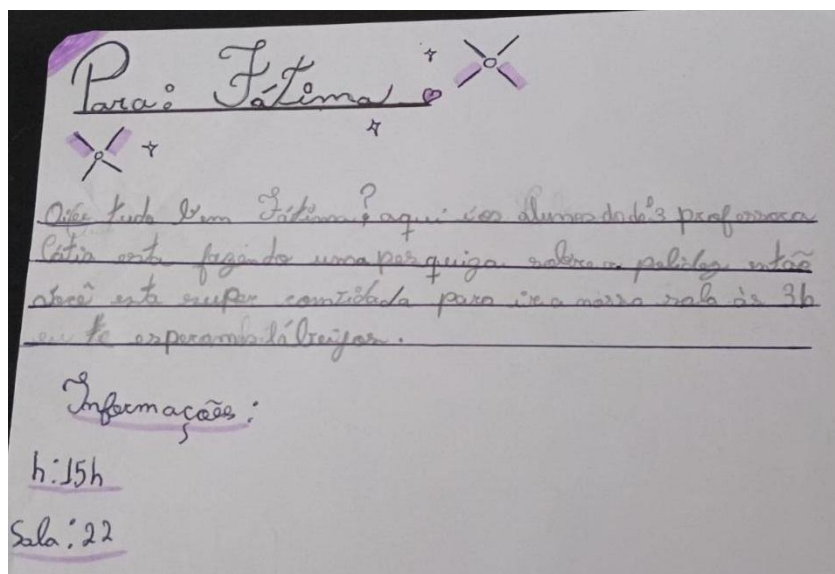 Para: Fátima
tudo bem Fátima? aqui é os alunos da professora
Cátia esta fazendo uma perquiza sobre a então
você esta super convidada para ir a nossa sala às 3h
eu te esperamos lá beijos.
Informações:
h:15h
Sala:22